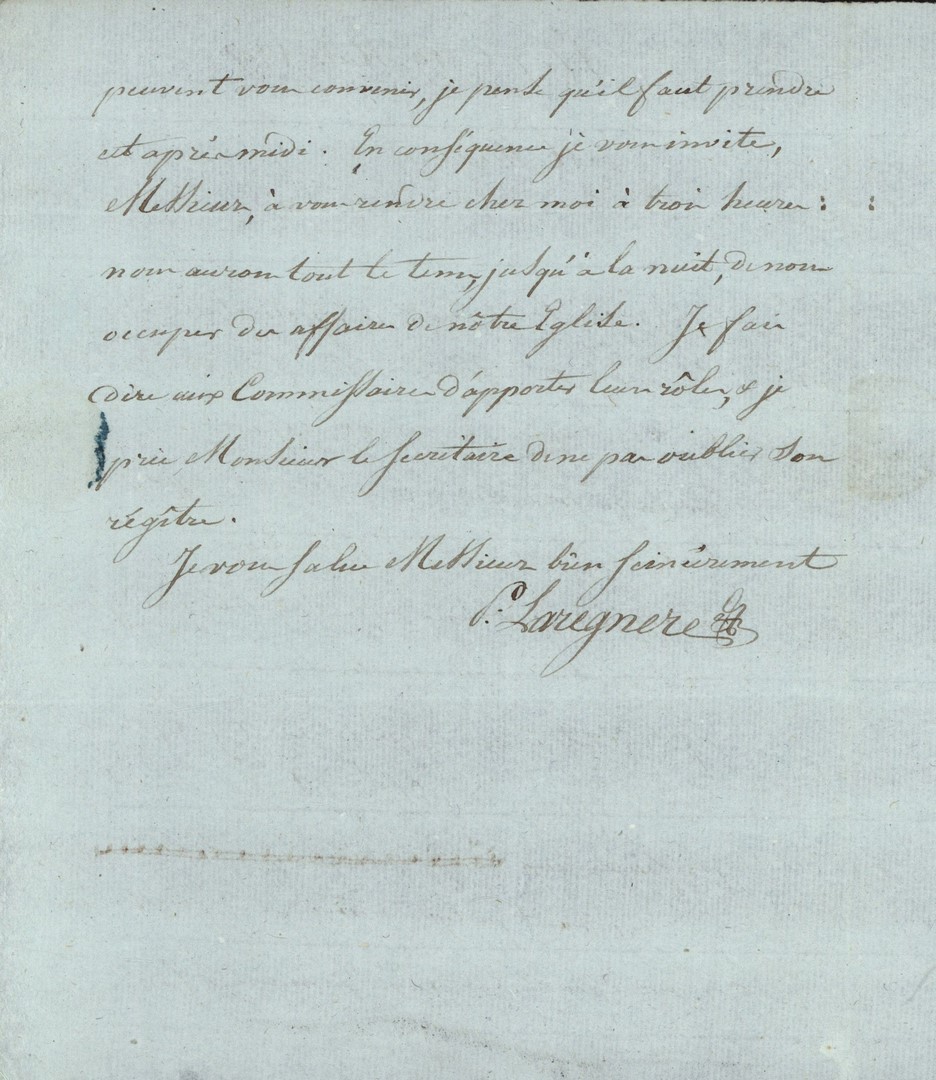 peuvent vous convenir, je pense qu'il faut prendre
cet après midi. En conséquence je vous invite,
Messieurs, à vous rendre chez moi à trois heures :
nous aurons tout le tems, jusqu'à la nuit, de nous
occuper des affaires de nôtre Eglise. Je fais
dire aux Commissaires d'apporter leurs rôles, & je
prie Monsieur le Secretaire de ne pas oublier son
régître.
Je vous salue Messieurs bien sincérement
P. Laregnere